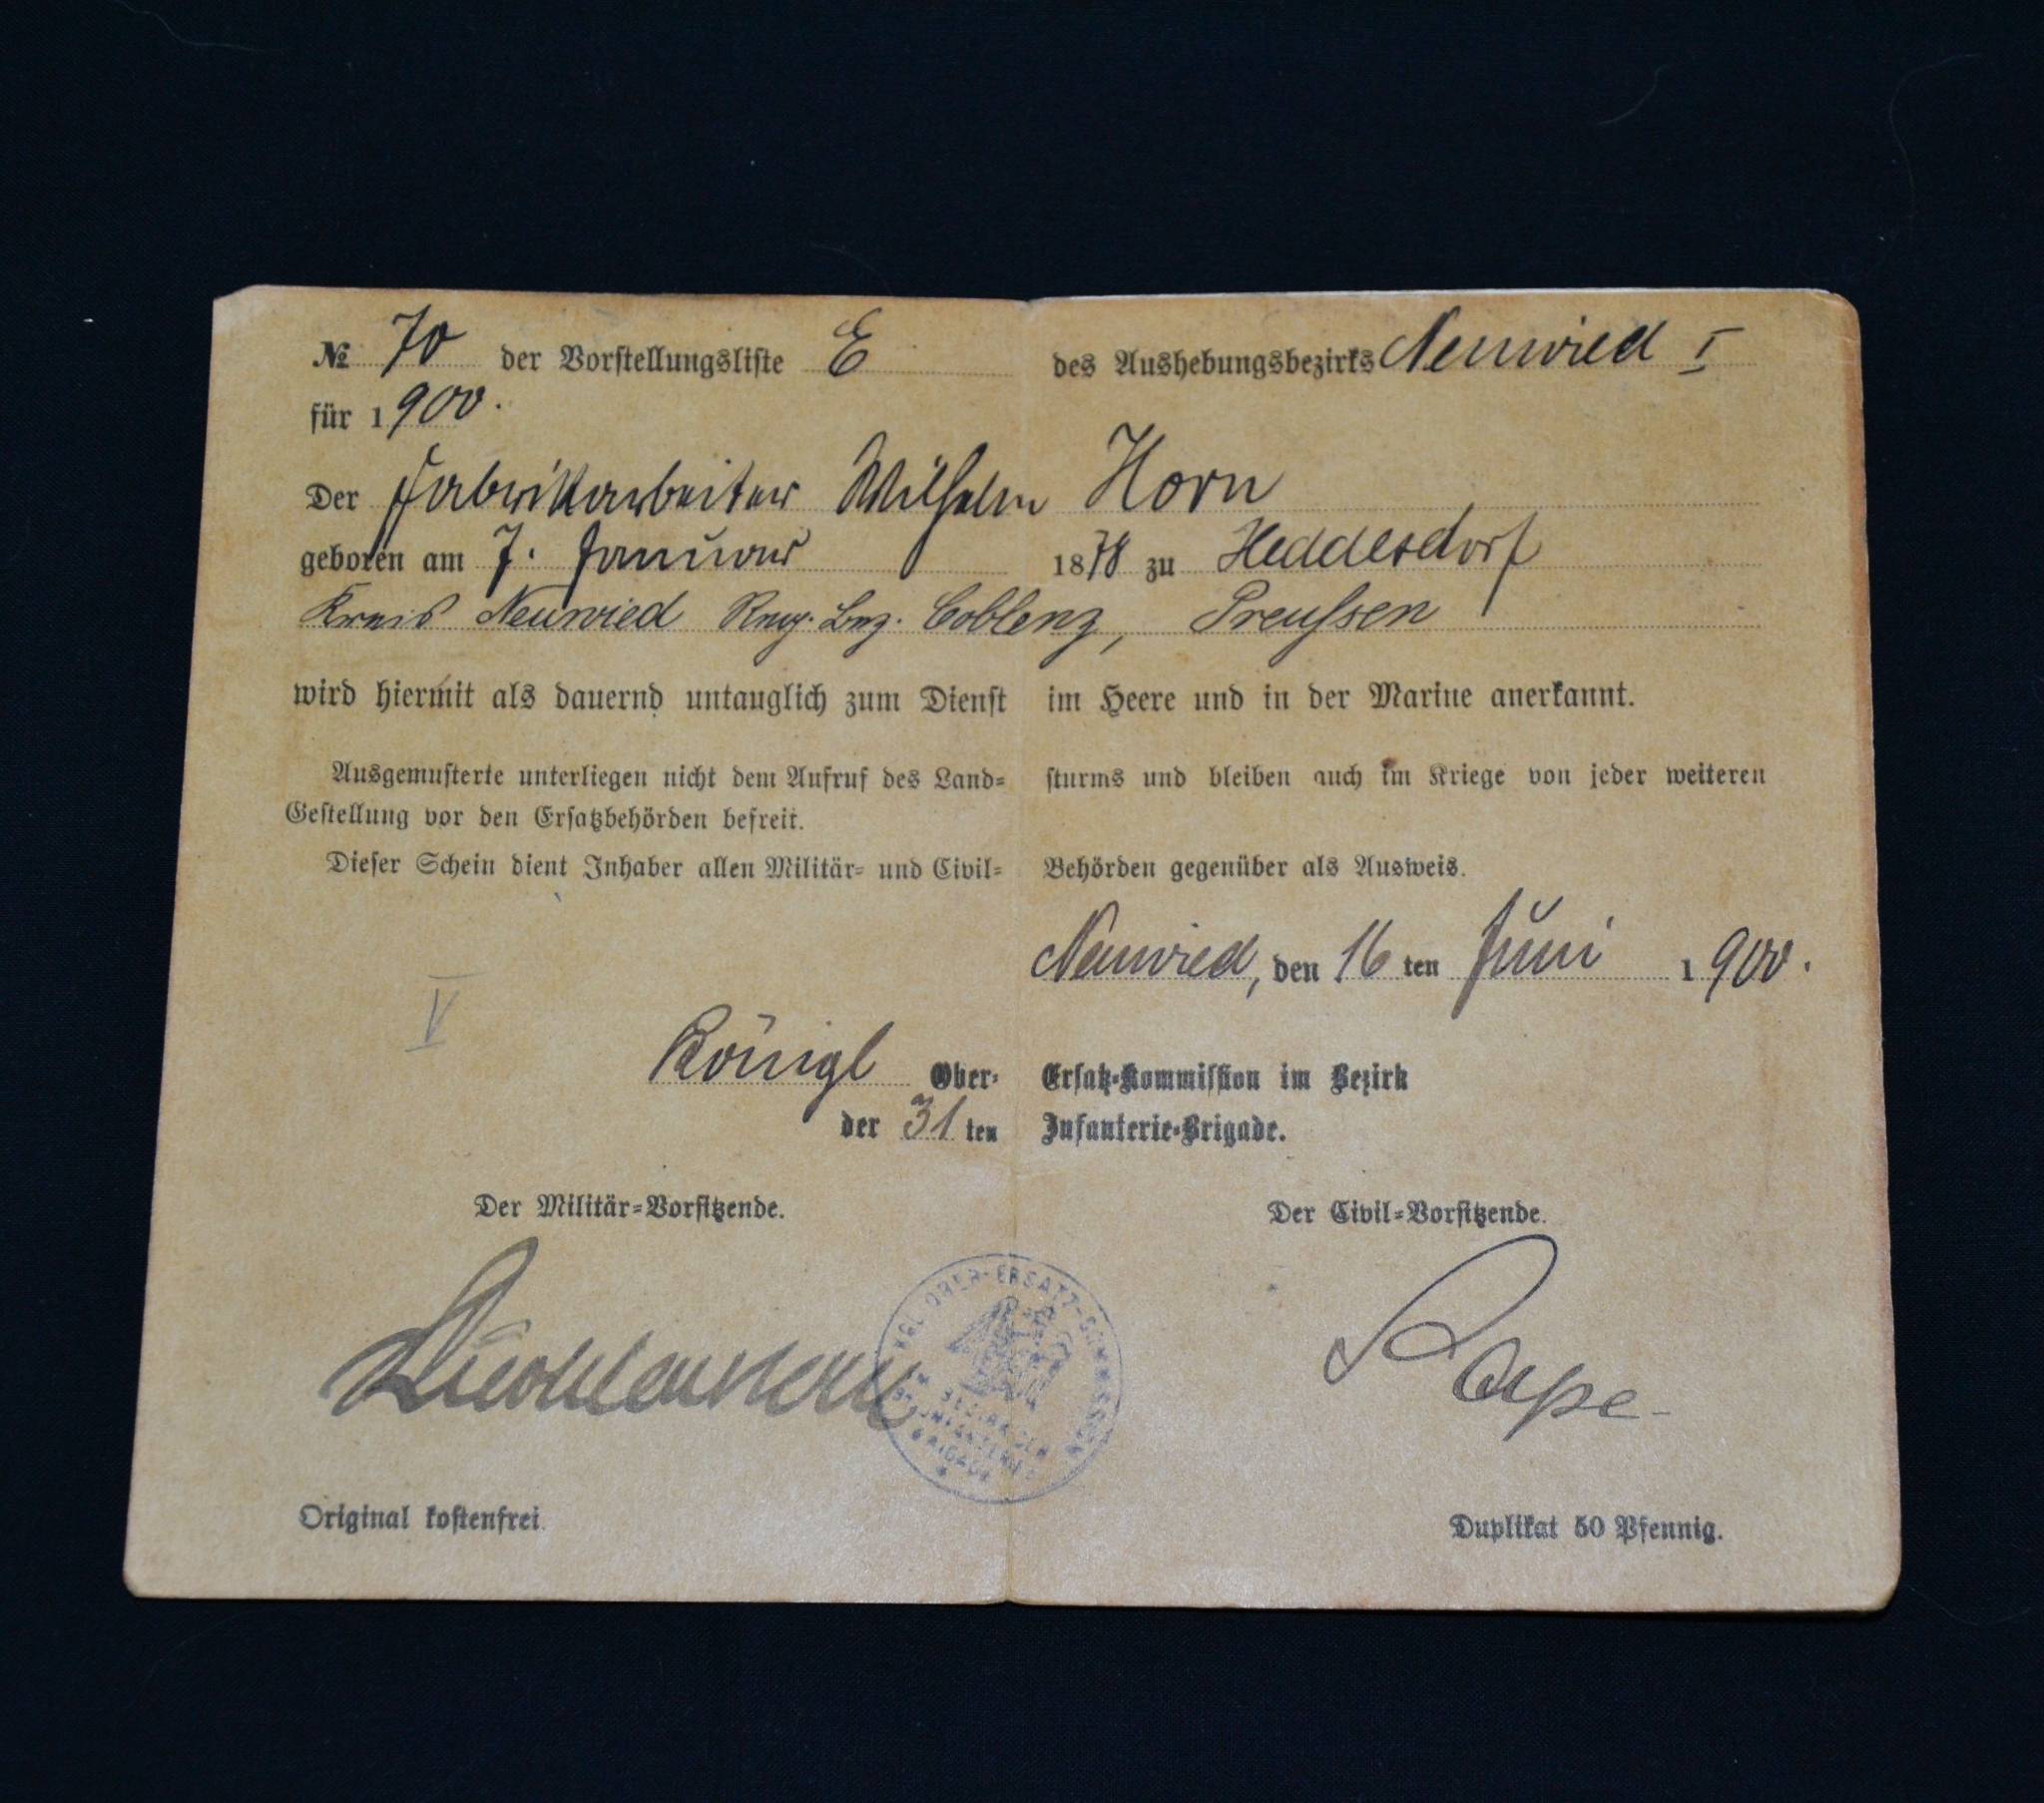 № 70 der Vorstellungsliste E des Aushebungsbezirks Neuwied I
für 1900.
Der Fabrikarbeiter Wilhelm Horn
geboren am 7. Januar 1878 zu Heddesdorf
Kreis Neuwied Reg. Bez. Coblenz, Preußen
wird hiermit als dauernd untauglich zum Dienst im Heere und in der Marine anerkannt.
Ausgemusterte unterliegen nicht dem Aufruf des Land- sturms und bleiben auch im Kriege von jeder weiteren
Gestellung vor den Ersatzbehörden befreit.
Dieser Schein dient Inhaber allen Militär- und Civil- Behörden gegenüber als Ausweis.
Neuwied, den 16 ten Juni 1900.
V
Königl Ober- Ersatz-Kommission im Bezirk
der 31 ten Infanterie-Brigade.
Der Militär-Vorsitzende. Der Civil-Vorsitzende.
KGL. OBER-ERSATZ-COMMISSION
IM BEZIRK DER
31. INFANTERIE
BRIGADE
Original kostenfrei. Duplikat 50 Pfennig.